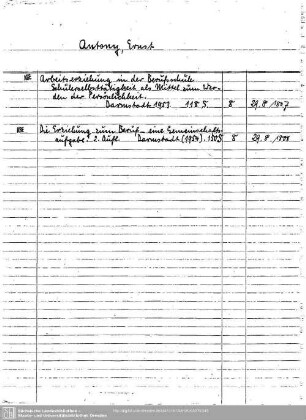 Antony, Ernst
Arbeitserziehung in der Berufsschule.
Schülerselbsttätigkeit als Mittel zum Wer-
den der Persönlichkeit.
Darmstadt 1953. 118 S. 8 29. 8 1807
Die Erziehung zum Beruf – eine Gemeinschafts-
aufgabe. 2. Aufl. Darmstadt (1954). 150 S 8 29. 8 1808
Sächsische Landesbibliothek -
Staats- und Universitätsbibliothek Dresden